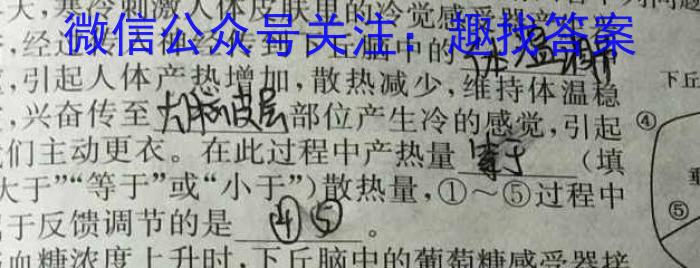 大，寒冷刺激人体皮肤里的冷觉感受
微信公众号关注：趣找答案
，经过
脑中的体温调节
，引起人体产热增加，散热减少，维持体温稳
，兴奋传至大脑皮层部位产生冷的感觉，引起
们主动更衣。在此过程中产热量等于（填
大于”“等于”或“小于”）散热量，①～⑤过程中
于反馈调节的是④⑤。
血糖浓度上升时，下丘脑中的葡萄糖感受器接
下丘
④
⑤